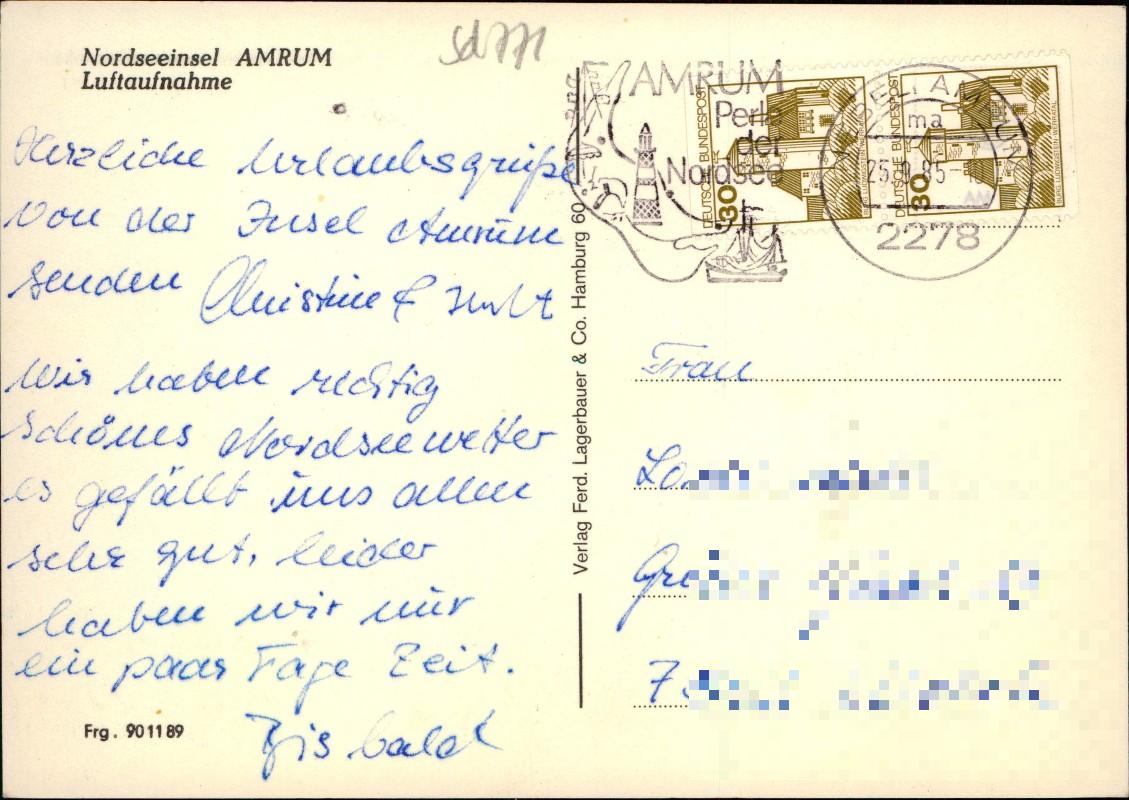 Nordseeinsel AMRUM
Luftaufnahme
Herzliche Urlaubsgrüße
von der Insel Amrum
senden Christine &
Wir haben richtig
schönes Nordseewetter
es gefällt uns allen
sehr gut, leider
haben wir nur
ein paar Tage Zeit.
Bis bald
Frg. 901189
Verlag Ferd. Lagerbauer & Co. Hamburg 60
AMRUM
Perle
der
Nordsee
DEUTSCHE BUNDESPOST
30
DEUTSCHE BUNDESPOST
30
ma
2278
Frau